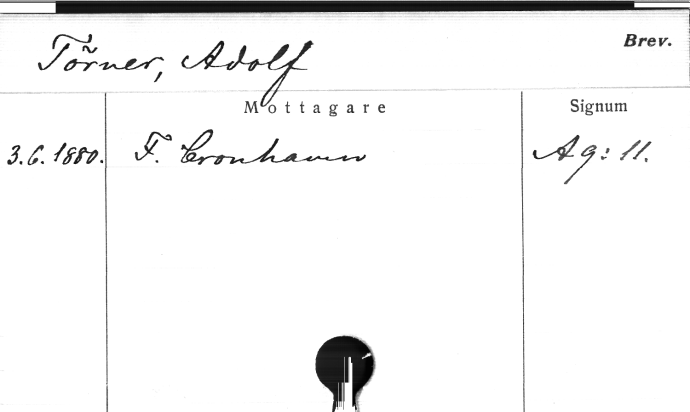 Törner, Adolf
Brev.
Mottagare
Signum
3.6.1880.
F. Cronhamn
Ag: 11.